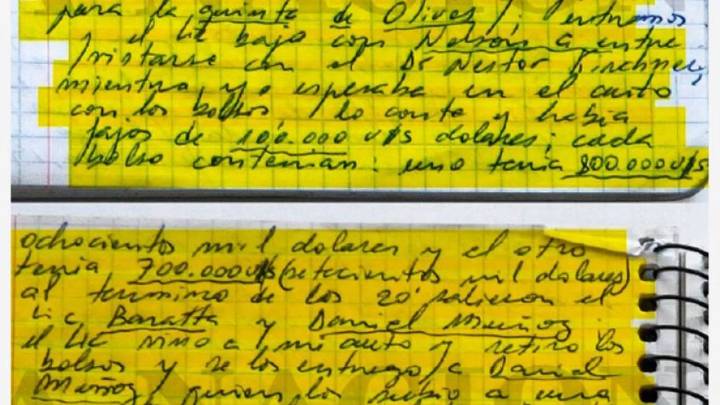 para la quinta de Olivos /: entramos
y el Lic bajo con Nelson a entre
/vistarse con el Dr Nestor Kirchner,
mientras, yo esperaba en el auto
con los bolsos / lo conte y habia
fajos de 100.000 u/s dolares; cada
/bolso contenian: uno tenia 800.000 u/s
ochocientos mil dolares y el otro
tenia 700.000 u/s (setecientos mil dolares)
al termino de los 20' salieron el
Lic Baratta y Daniel Muñoz
el Lic vino a / mi auto y retiro los
bolsos y se los entrego / a Daniel
Muñoz / quien los subio a una